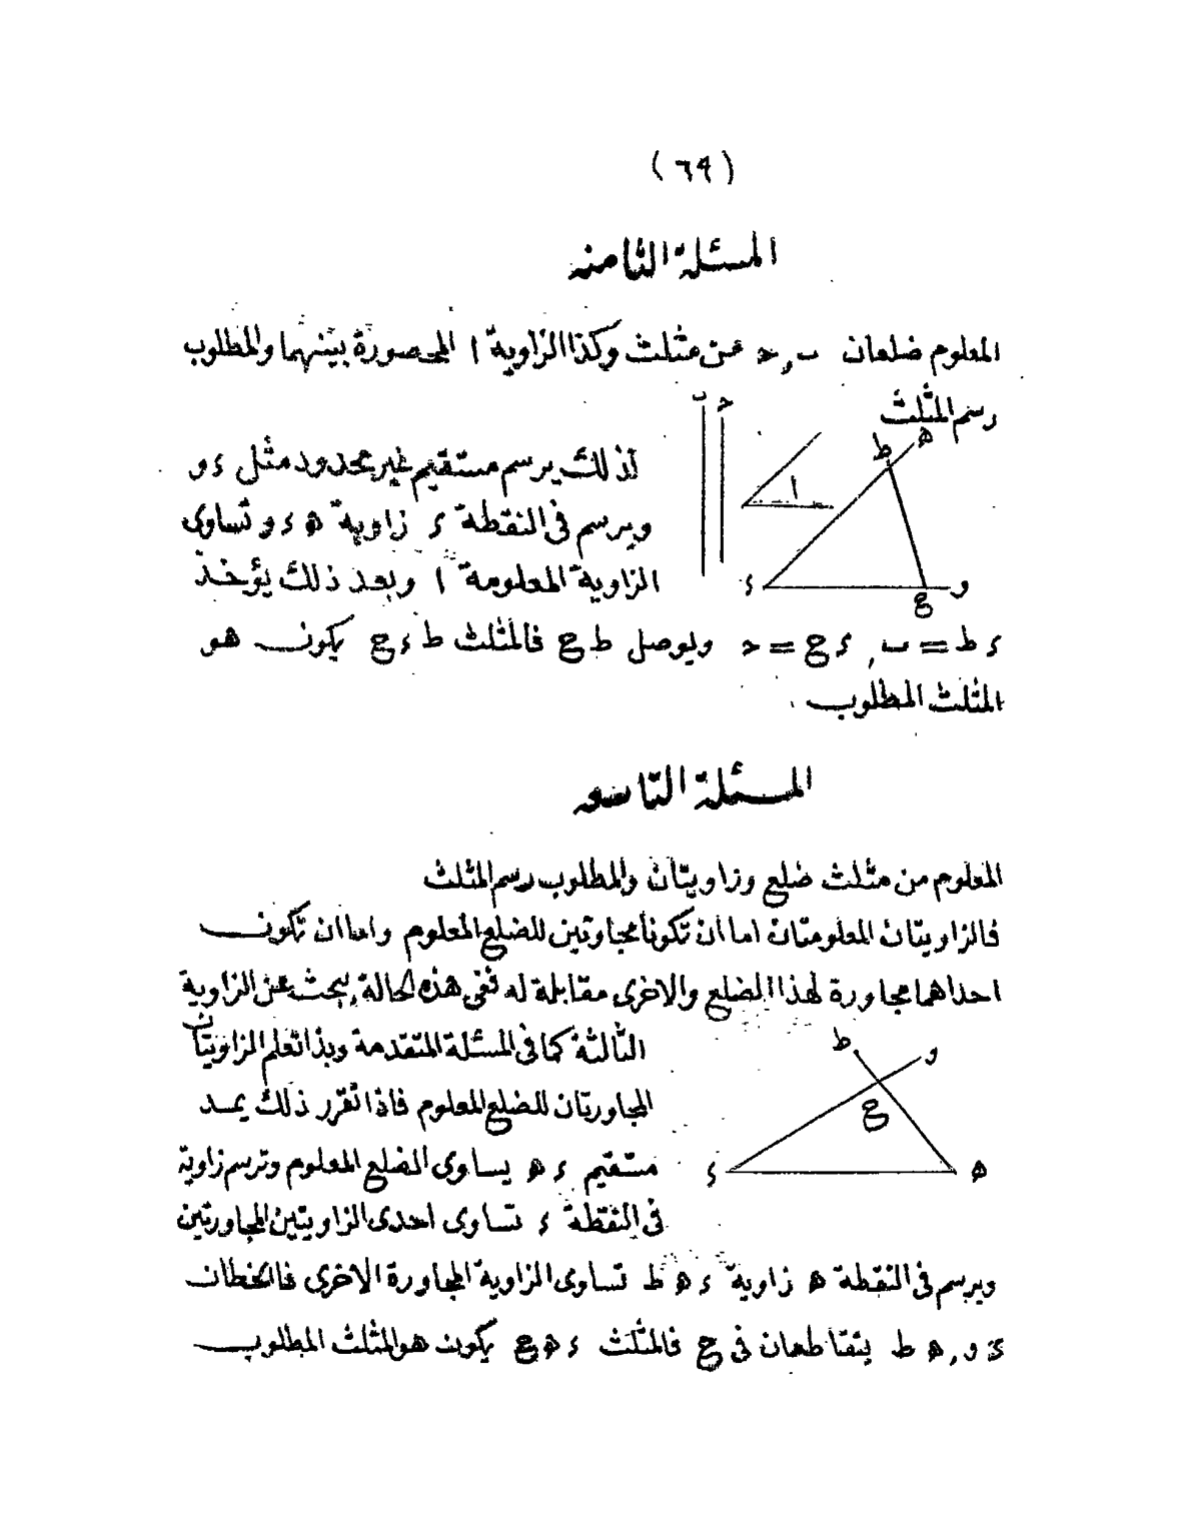 (٦٩)
المسئلة الثامنه
المعلوم ضلعان ب , ح من مثلث وكذا الزاوية ا المحصورة بينهما والمطلوب
رسم المثلث
ب ح
ا
ط ه
ء ع و
لذلك يرسم مستقيم غير محدود مثل ء و
ويرسم فى النقطة ء زاوية ه ء و تساوى
الزاوية المعلومة ا وبعد ذلك يؤخذ
ء ط = ب , ء ع = ح ويوصل ط ع فالمثلث ط ء ع يكون هو
المثلث المطلوب .
المسئلة التاسعه
المعلوم من مثلث ضلع وزاويتان والمطلوب رسم المثلث
فالزاويتان المعلومتان اما ان تكونا مجاورتين للضلع المعلوم واما ان تكون
احداهما مجاورة لهذا الضلع والاخرى مقابلة له ففى هذه الحالة يبحث عن الزاوية
الثالثة كما فى المسئلة المتقدمة وبذا تعلم الزاويتان
المجاورتان للضلع المعلوم فاذا تقرر ذلك يمد
مستقيم ء ه يساوى الضلع المعلوم وترسم زاوية
فى النقطة ء تساوى احدى الزاويتين المجاورتين
ط و
ع
ء ه
ويرسم فى النقطة ه زاوية ء ه ط تساوى الزاوية المجاورة الاخرى فالخطان
ء و , ه ط يتقاطعان فى ع فالمثلث ء ه ع يكون هو المثلث المطلوب